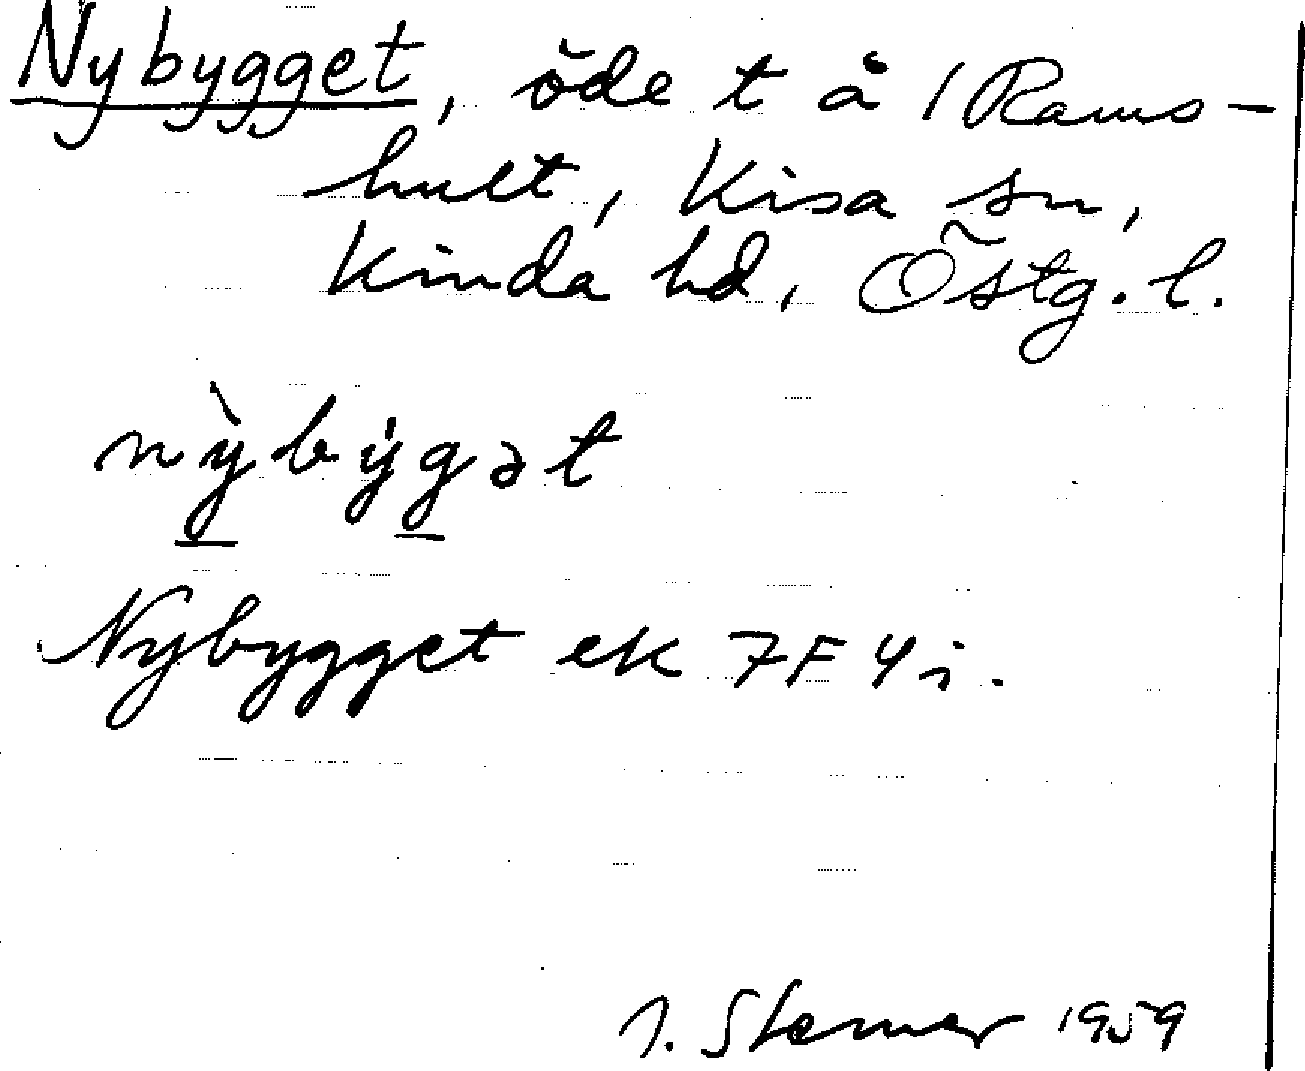 Nybygget, öde t å /Rams-
hult, Kisa sn,
Kinda hd, Östg. l.
nỳbýgət
Nybygget ek 7F4i.
1959